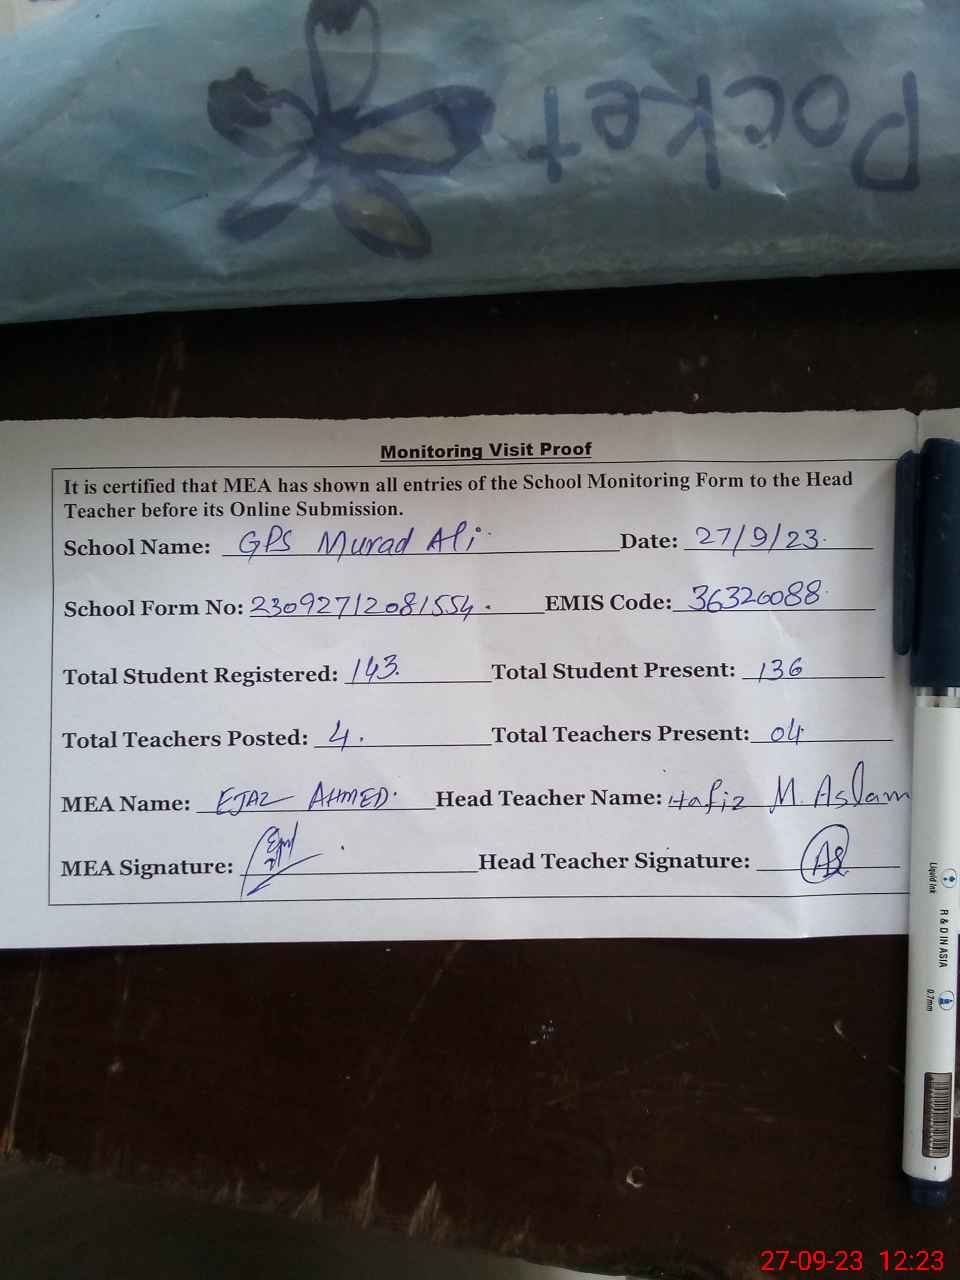 Pocket
Monitoring Visit Proof
It is certified that MEA has shown all entries of the School Monitoring Form to the Head
Teacher before its Online Submission.
School Name: GPS Murad Ali Date: 27/9/23.
School Form No: 23092712081554. EMIS Code: 36320088.
Total Student Registered: 143. Total Student Present: 136
Total Teachers Posted: 4. Total Teachers Present: 04
MEA Name: EJAZ AHMED. Head Teacher Name: Hafiz M. Aslam
MEA Signature: Head Teacher Signature:
Liquid ink R & D IN ASIA 0.7mm
27-09-23 12:23